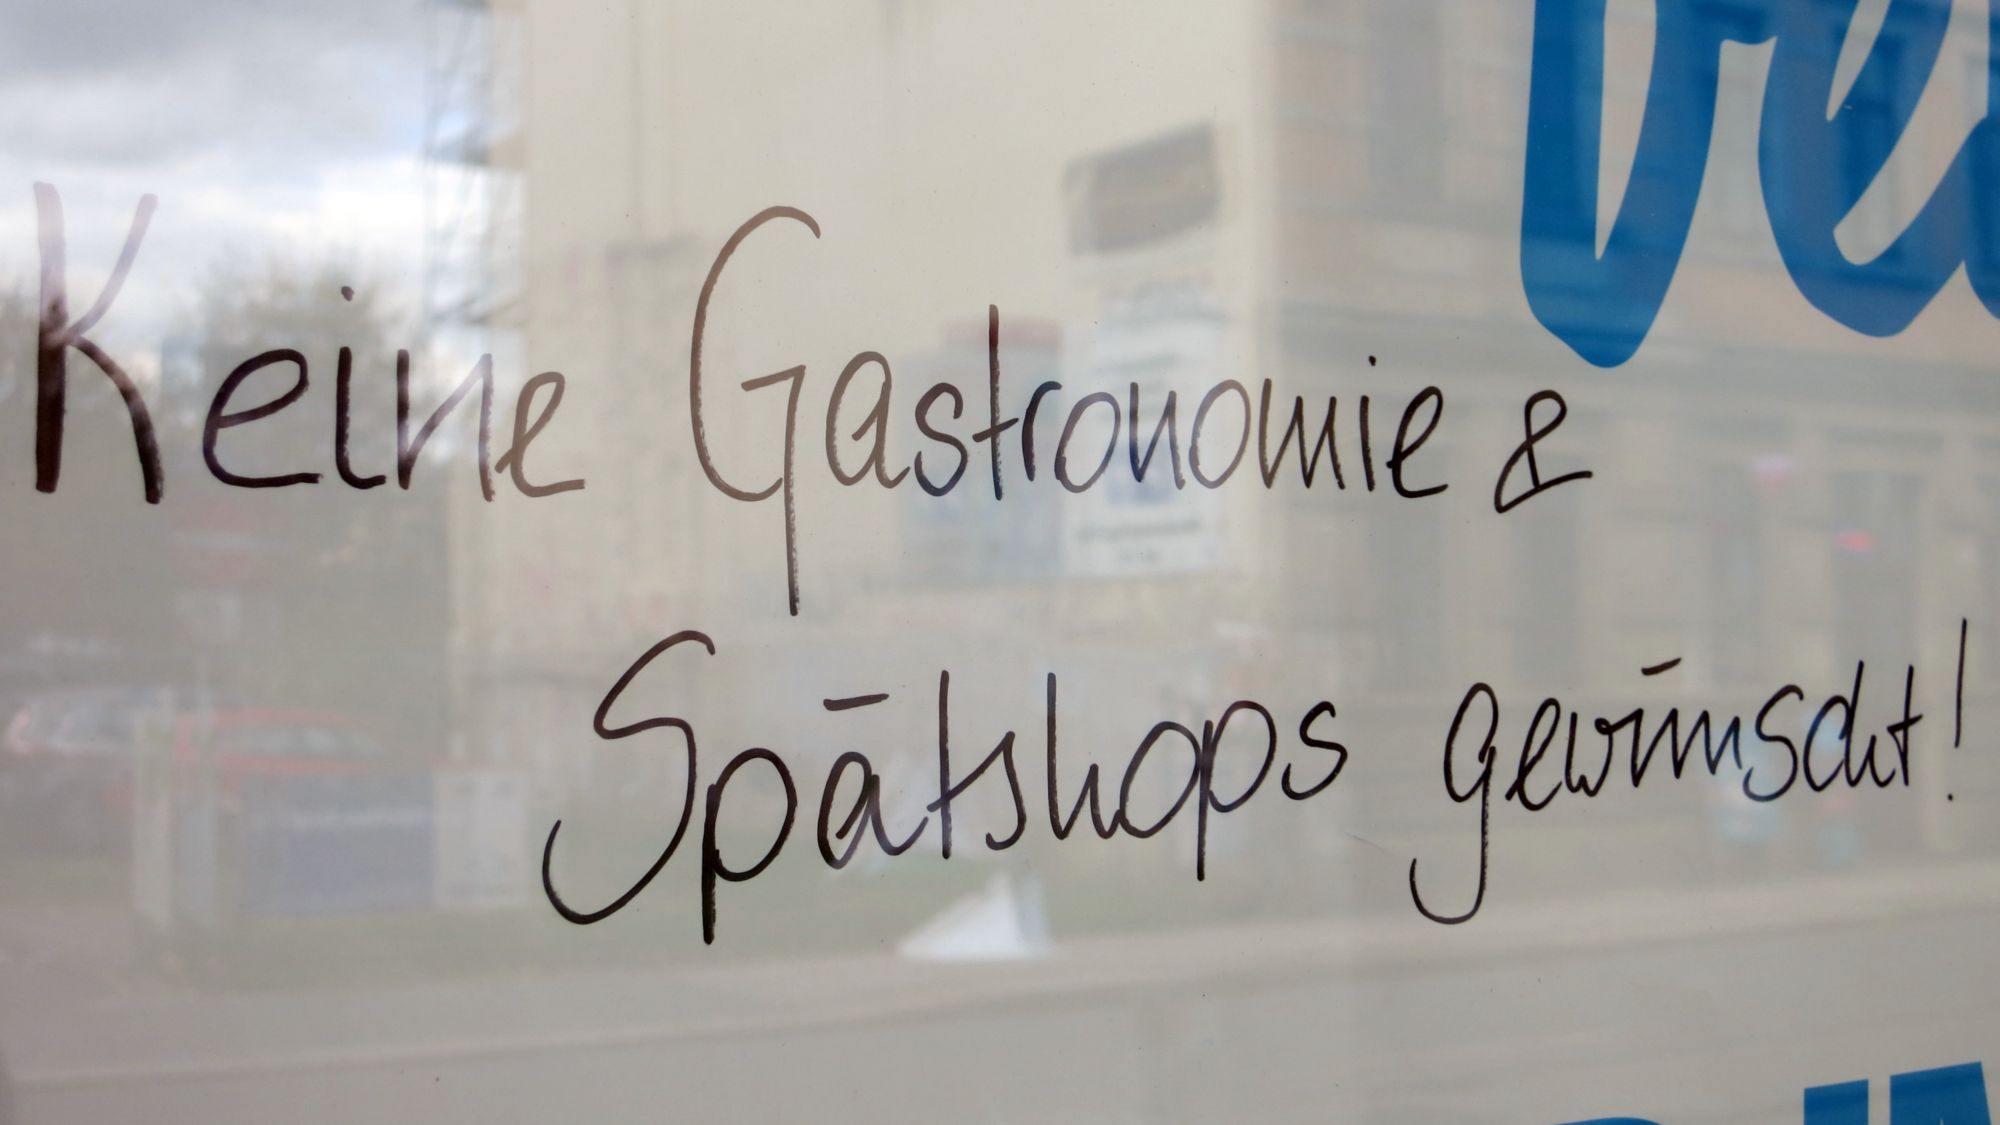 Keine Gastronomie &
Spätshops gewünscht!